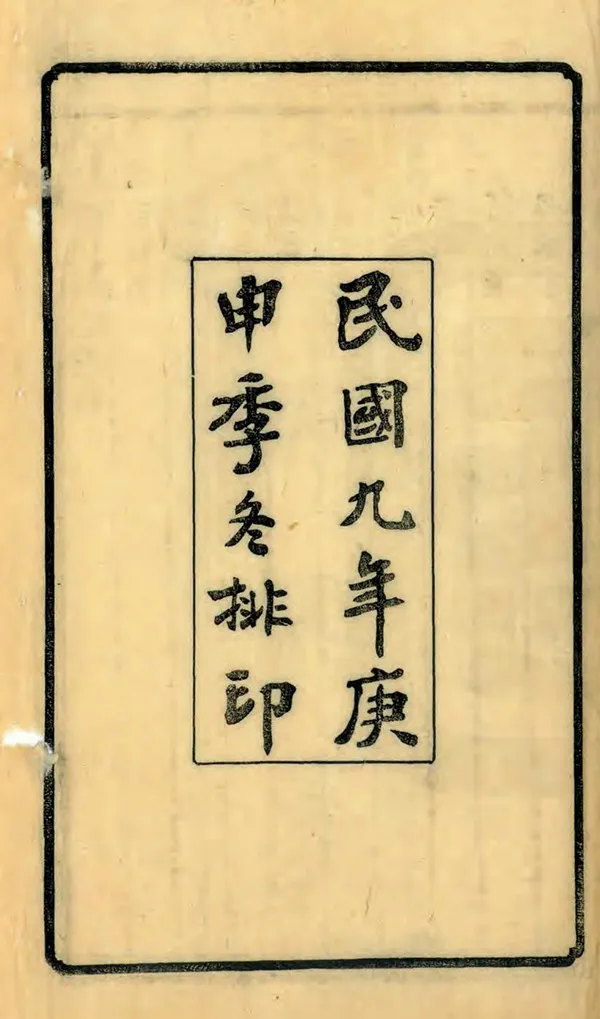 民國九年庚
申季冬排印